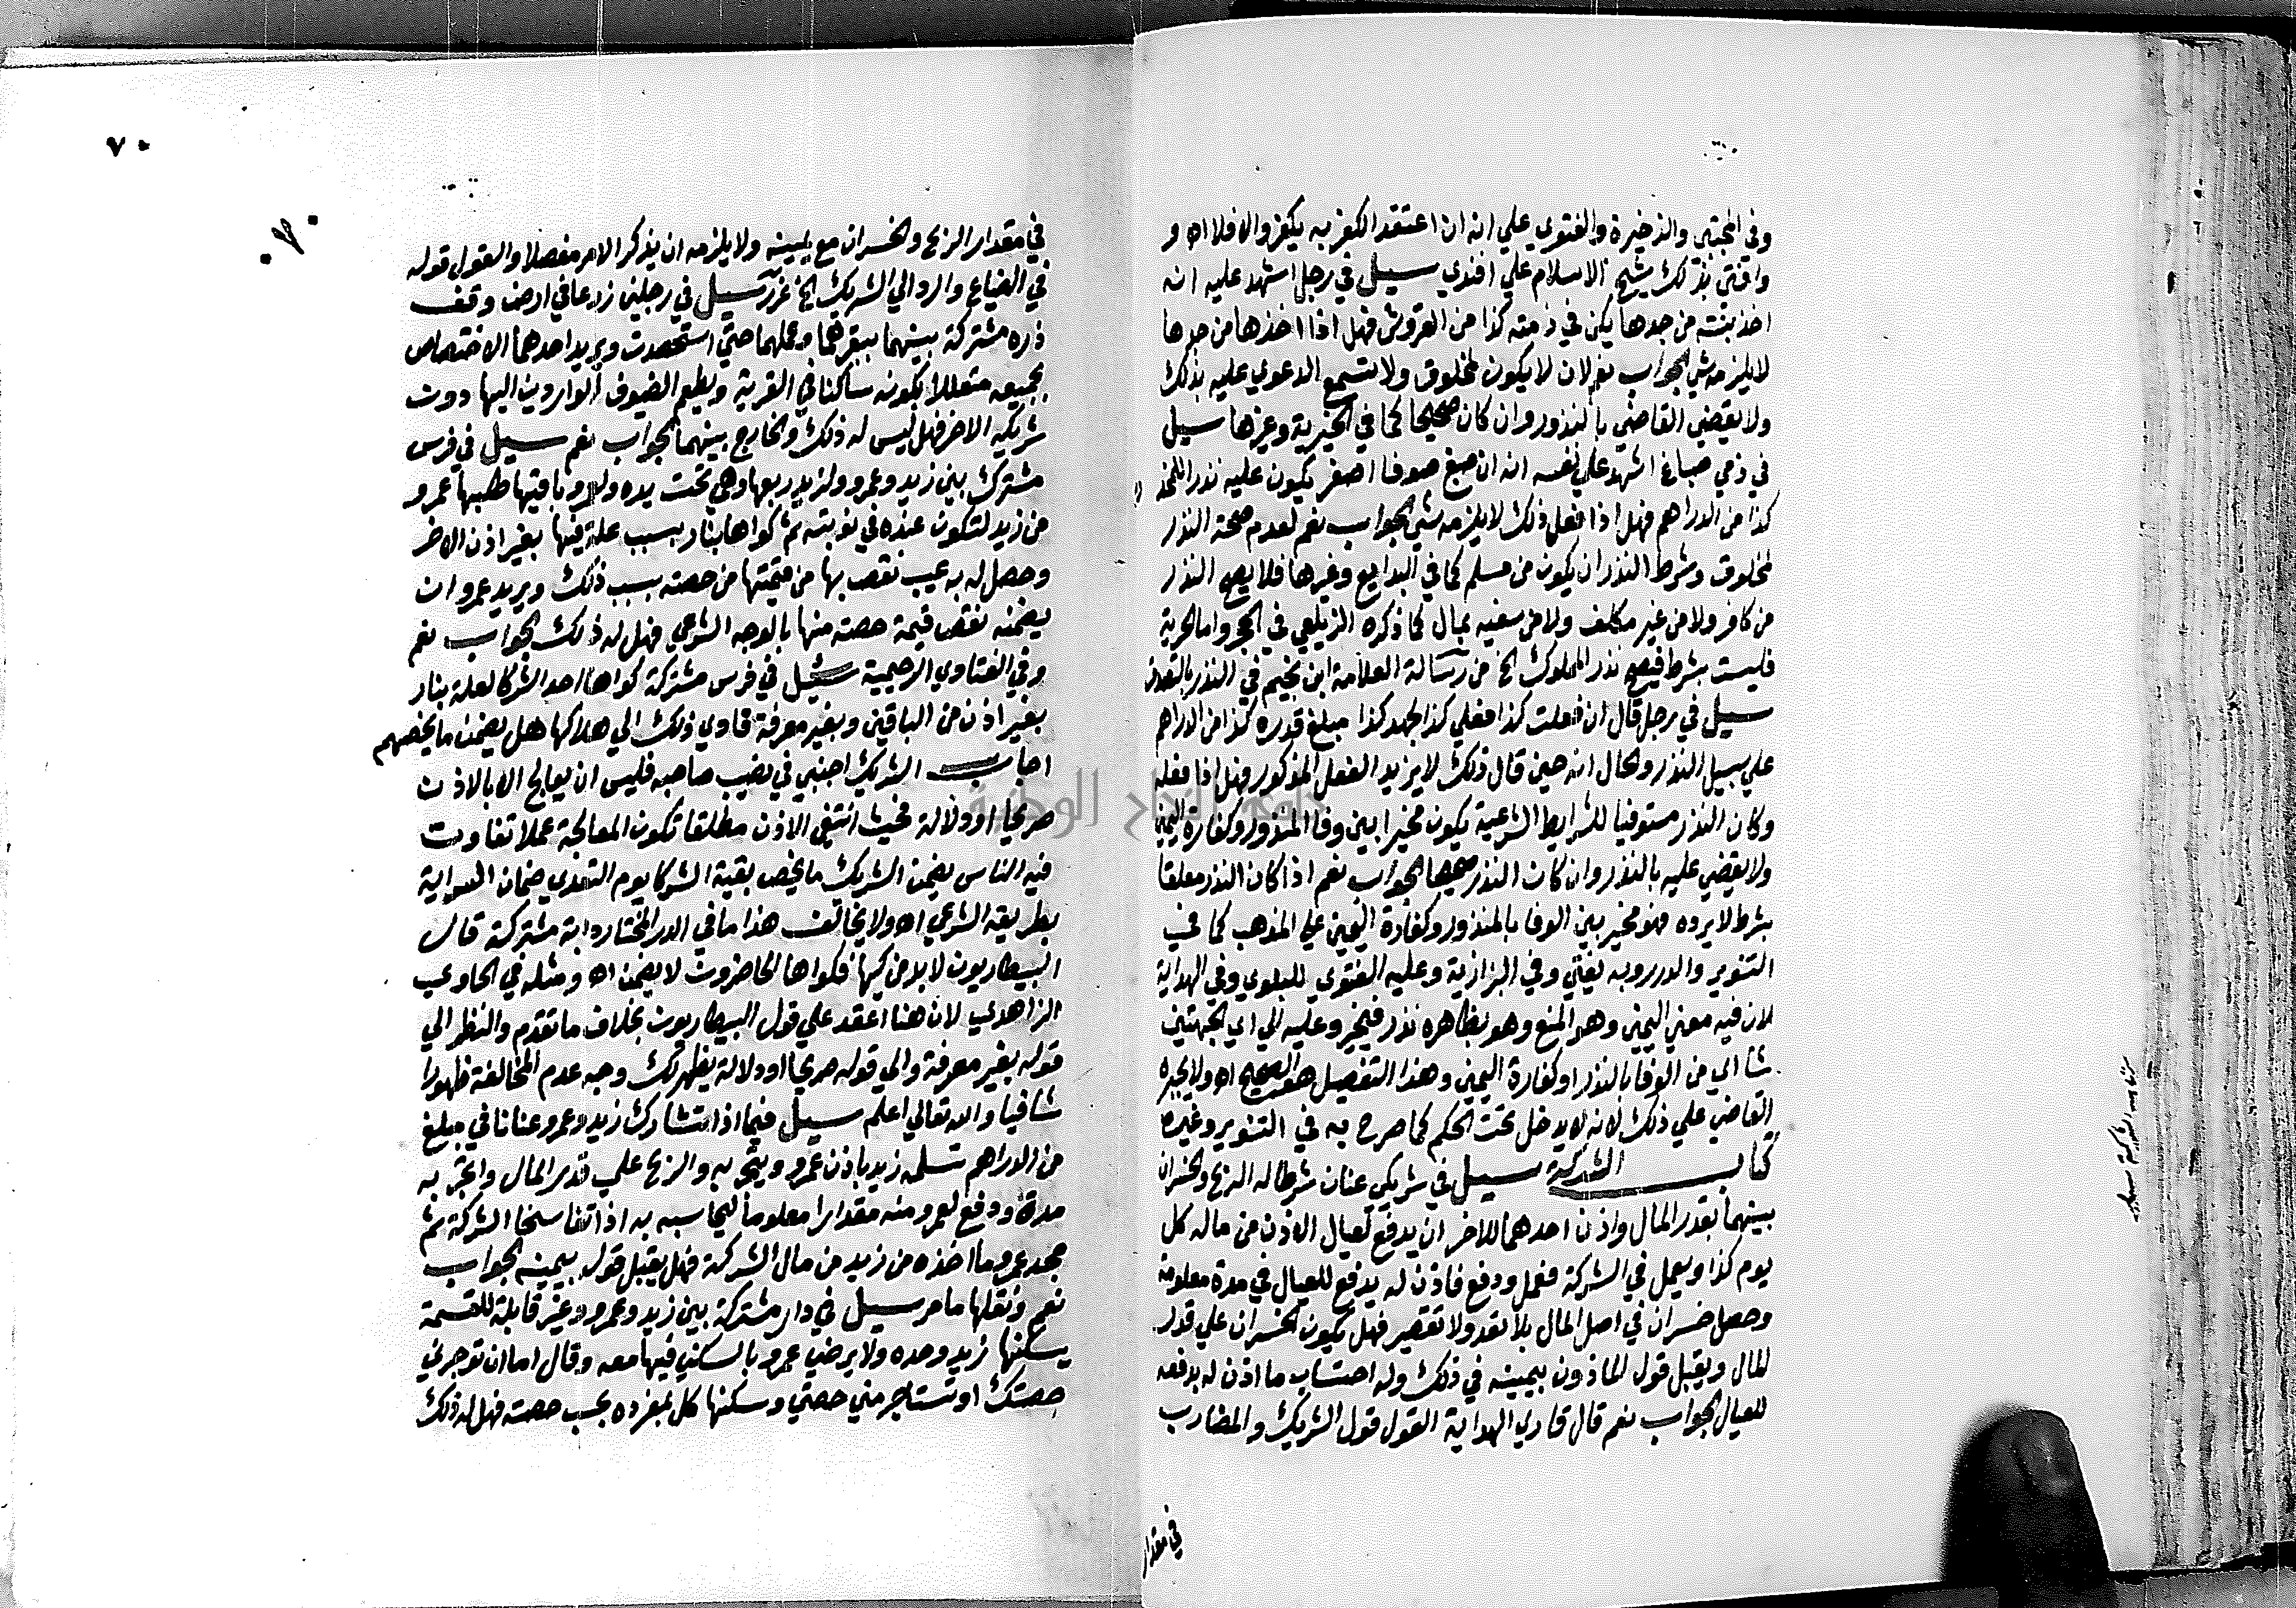 وفي المجتبى والذخيرة والفتوي علي انه ان اعتقد الكفر به يكفر والا فلا اه و
وافتى بذلك شيخ الاسلام علي افندي سيل في رجل اشهد عليه انه
اخذ بنته من جدها يكن في ذمته كذا من القروش فهل اذا اخذها من جدها
لا يلزمه شي الجواب نعم لان لا يكون لمخلوق ولا تسمع الدعوي عليه بذلك
ولا يقضي القاضي بالنذور وان كان صحيحا كما في الخيرية وغيرها سيل
في ذمي صباغ اشهد علي نفسه انه ان صبغ صوفا اصفر يكون عليه نذرا
كذا من الدراهم فهل اذا فعل ذلك لا يلزمه شي الجواب نعم لعدم صحة النذر
لمخلوق وشرط النذر ان يكون من مسلم كما في البدايع وغيرها فلا يصح النذر
من كافر ولا من غير مكلف ولا من سفيه بمال كما ذكره الزيلعي في الحجر واما الحرية
فليست بشرط فيصح نذر المملوك الخ من رسالة العلامة ابن نجيم في النذر بالتصدق
سيل في رجل قال ان فعلت كذا فعلي كذا لجهد كذا مبلغ قدره كذا من الدراهم
علي سبيل النذر والحال انه حين قال ذلك لا يريد الفعل المذكور فهل اذا فعله
وكان النذر مستوفيا للشرايط الشرعية يكون مخيرا بين وفا المنذور وكفارة اليمين
ولا يقضي عليه بالنذر وان كان النذر صحيحا الجواب نعم اذا كان النذر معلقا
بشرط لا يرده فهو مخير بين الوفا بالمنذور وكفارة اليمين علي المذهب كما في
التنوير والدرر وبه يفتي وفي البزازية وعليه الفتوي للبلوي وفي الهداية
لان فيه معني اليمين وهو المنع وهو بظاهره نذر فيخير وعليه الي اي الجهتين
شا اي من الوفا بالنذر او كفارة اليمين وهذا التفصيل هو الصحيح اه ولا يجبره
القاضي علي ذلك لانه لا يدخل تحت الحكم كما صرح به في التنوير وغيره
كتاب الشركة سيل في شريكي عنان شرطا له الربح والخسران
بينهما بقدر المال واذن احدهما للاخر ان يدفع لعيال الاذن من ماله كل
يوم كذا ويعمل في الشركة فعمل ودفع فاذن له يدفع للعيال في مدة معلومة
وحصل خسران في اصل المال بلا تعد ولا تقصير فهل يكون الخسران علي قدر
المال ويقبل قول الماذون بيمينه في ذلك وله احتساب ما اذن له بدفعه
للعيال الجواب نعم قال قاري الهداية القول قول الشريك والمضارب
في مقدار
٧٠
في مقدار الربح والخسران مع يمينه ولا يلزمه ان يذكر الامر مفصلا والقول قوله
في الضياع والرد الي الشريك الخ سيل في رجلين زرعا في ارض وقف
ذره مشتركة بينهما ببقرهما وعملهما حتي استحصدت ويريد احدهما الاختصاص
بجميعه متعللا بكونه ساكنا في القرية ويطعم الضيوف الواردين اليها دون
شريكه الاخر فهل ليس له ذلك والخارج بينهما الجواب نعم سيل في فرس
مشترك بين زيد وعمرو ولزيد ربعها وهي تحت يده ولعمرو باقيها طلبها عمرو
من زيد لتكون عنده في نوبته ثم كواها بنار بسبب علة فيها بغير اذن الاخر
وحصل له به عيب نقص بها من قيمتها من حصته بسبب ذلك ويريد عمرو ان
يضمنه نقص قيمة حصته منها بالوجه الشرعي فهل له ذلك الجواب نعم
وفي الفتاوي الرحيمية سئيل في فرس مشتركة كواها احد الشركا لعلة بنار
بغير اذن من الباقين وبغير معرفة فادي ذلك الي هلاكها هل يضمن ما يخصهم
اجاب الشريك اجنبي في نصيب صاحبه فليس ان يعالج الا بالاذن
صريحا او دلالة فحيث انتفي الاذن مطلقا تكون المعالجة عملا تفاوت
فيه الناس يضمن الشريك ما يخص بقية الشركا يوم التعدي ضمان السراية
بطريقه الشرعي اه ولا يخالف هذا ما في الدر المختار دابة مشتركة قال
البيطاريون لا بد من كيها فكواها الحاضرون لا يضمن اه ومثله في الحاوي
الزاهدي لان هنا اعتمد علي قول البيطاريون بخلاف ما تقدم والنظر الي
قوله بغير معرفة والي قوله صريحا او دلالة يظهر لك وجه عدم المخالفة ظهورا
شافيا والله تعالي اعلم سيل فيما اذا تشارك زيد وعمرو عنانا في مبلغ
من الدراهم تسلمه زيد باذن عمرو ويتجر به والربح علي قدر المال واتجر به
مدة ودفع لعمرو منه مقدارا معلوما ليحاسبه به اذا تفاسخا الشركة ثم
جحد عمرو ما اخذه من زيد من مال الشركة فهل يقبل قوله بيمينه الجواب
نعم ونقلها ما مر سيل في دار مشتركة بين زيد وعمرو وغير قابلة للقسمة
يسكنها زيد وحده ولا يرضي عمرو بالسكني فيها معه وقال اما ان توجرني
حصتك او تستاجر مني حصتي وسكنها كل بمفرده بحسب حصته فهل له ذلك
جامعة النجاح الوطنية